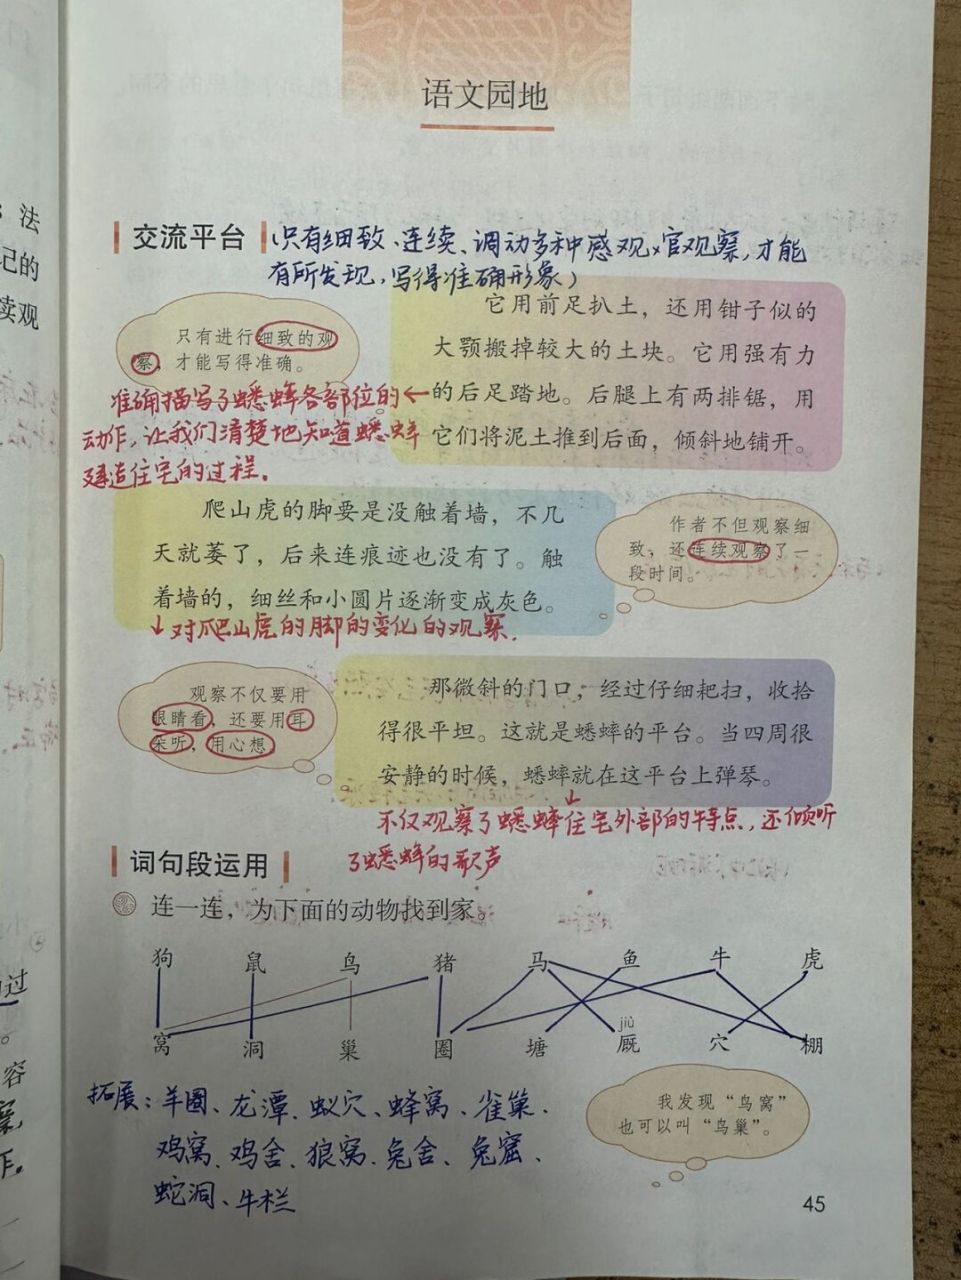 法
记的
续观
过
容
语文园地
交流平台
(只有细致、连续、调动多种感观×官观察,才能
有所发现,写得准确形象)
只有进行细致的观
察,才能写得准确。
它用前足扒土,还用钳子似的
大颚搬掉较大的土块。它用强有力
的后足踏地。后腿上有两排锯,用
它们将泥土推到后面,倾斜地铺开。
准确描写了蟋蟀各部位的←
动作,让我们清楚地知道蟋蟀
建造住宅的过程。
爬山虎的脚要是没触着墙,不几
天就萎了,后来连痕迹也没有了。触
着墙的,细丝和小圆片逐渐变成灰色。
作者不但观察细
致,还连续观察了一
段时间。
↓对爬山虎的脚的变化的观察.
观察不仅要用
眼睛看,还要用耳
朵听,用心想。
那微斜的门口,经过仔细耙扫,收拾
得很平坦。这就是蟋蟀的平台。当四周很
安静的时候,蟋蟀就在这平台上弹琴。
↓
不仅观察了蟋蟀住宅外部的特点,还倾听
了蟋蟀的歌声
词句段运用
连一连,为下面的动物找到家。
狗 鼠 鸟 猪 马 鱼 牛 虎
jiù
窝 洞 巢 圈 塘 厩 穴 棚
拓展:羊圈、龙潭、蚁穴、蜂窝、雀巢、
鸡窝、鸡舍、狼窝、兔舍、兔窟、
蛇洞、牛栏
我发现“鸟窝”
也可以叫“鸟巢”。
45